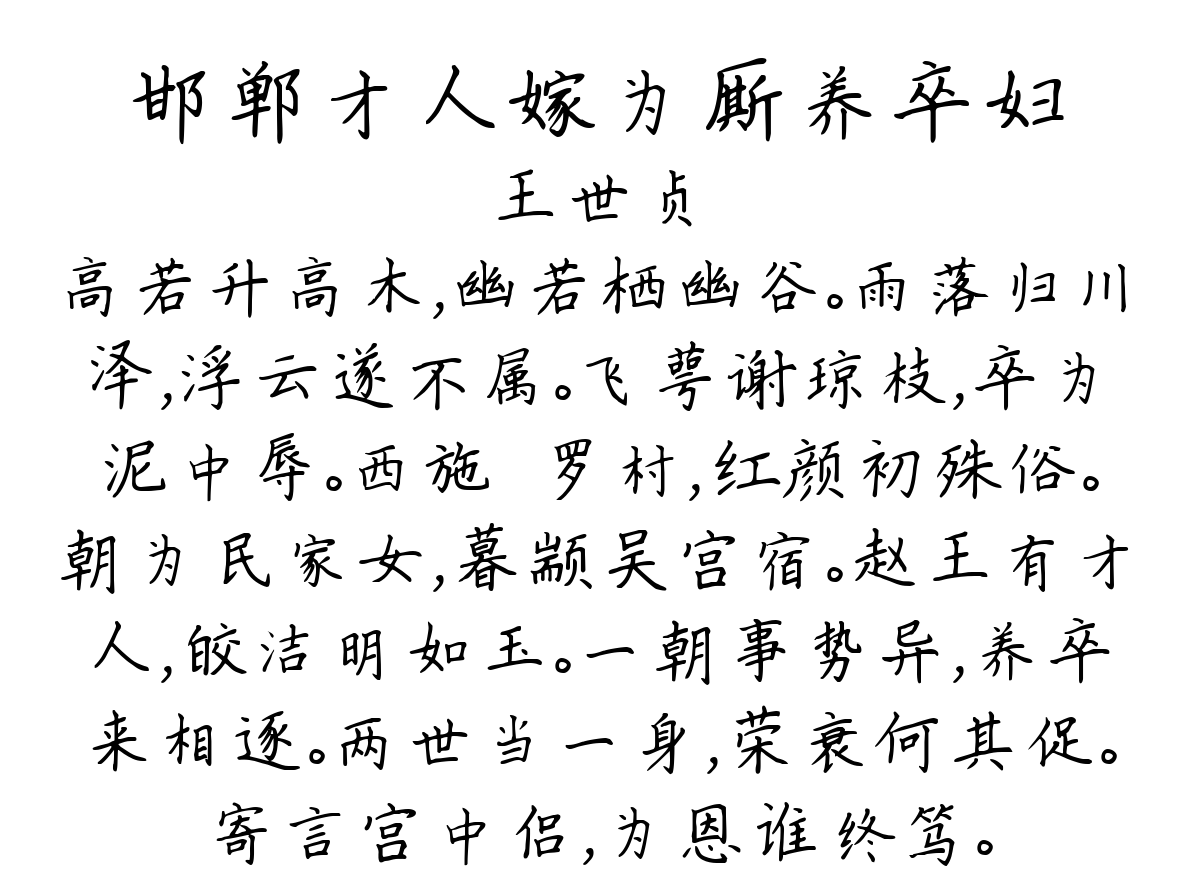 邯郸才人嫁为厮养卒妇
王世贞
高若升高木,幽若栖幽谷。雨落归川
泽,浮云遂不属。飞萼谢琼枝,卒为
泥中辱。西施 罗村,红颜初殊俗。
朝为民家女,暮颛吴宫宿。赵王有才
人,皎洁明如玉。一朝事势异,养卒
来相逐。两世当一身,荣衰何其促。
寄言宫中侣,为恩谁终笃。